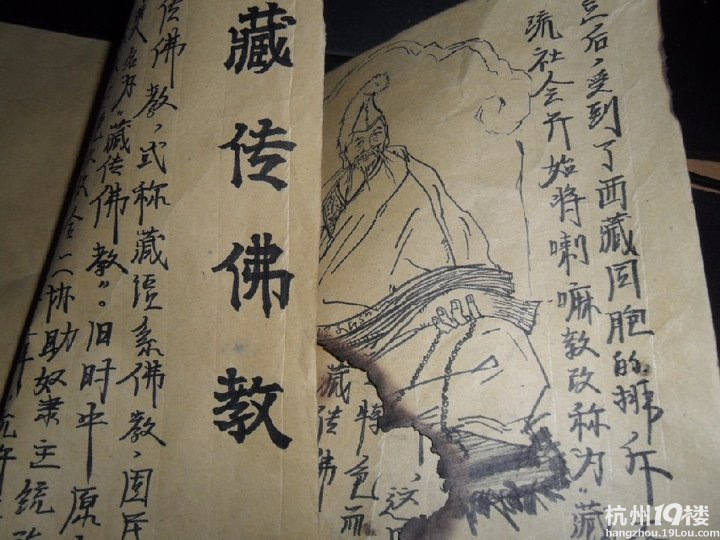 后，受到了西藏同胞的排
社会开始将喇嘛教改称为“藏
这
特色而
藏传佛
藏传佛教
传佛教，或称藏语系佛教，因
名为“藏传佛教”。旧时中原
会二协助奴隶主统
杭州19楼
hangzhou.19Lou.com